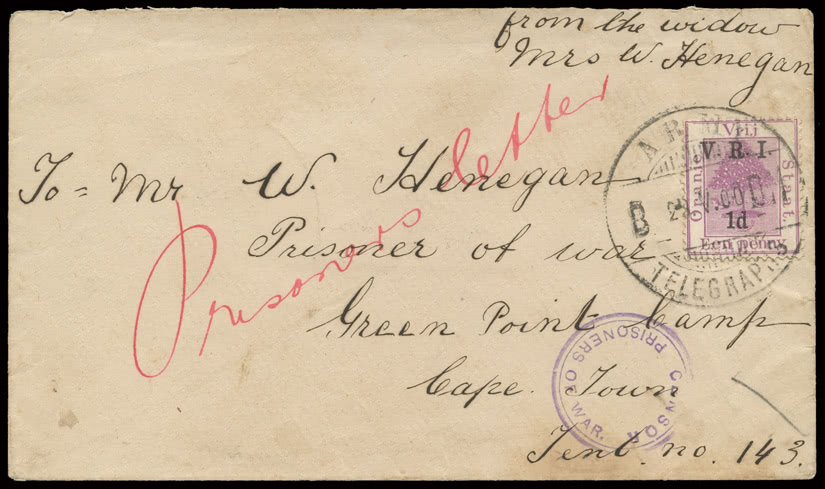 from the widow
Mrs W. Henegan
To = Mr W. Henegan
Prisoner of war
Green Point Camp
Cape Town
Tent. no. 143.
Prisoners letter
ARMY
TELEGRAPHS
B
00
Vrij
Oranje
Staat.
V. R. I.
1d
Een penny
CENSOR
PRISONERS OF WAR.